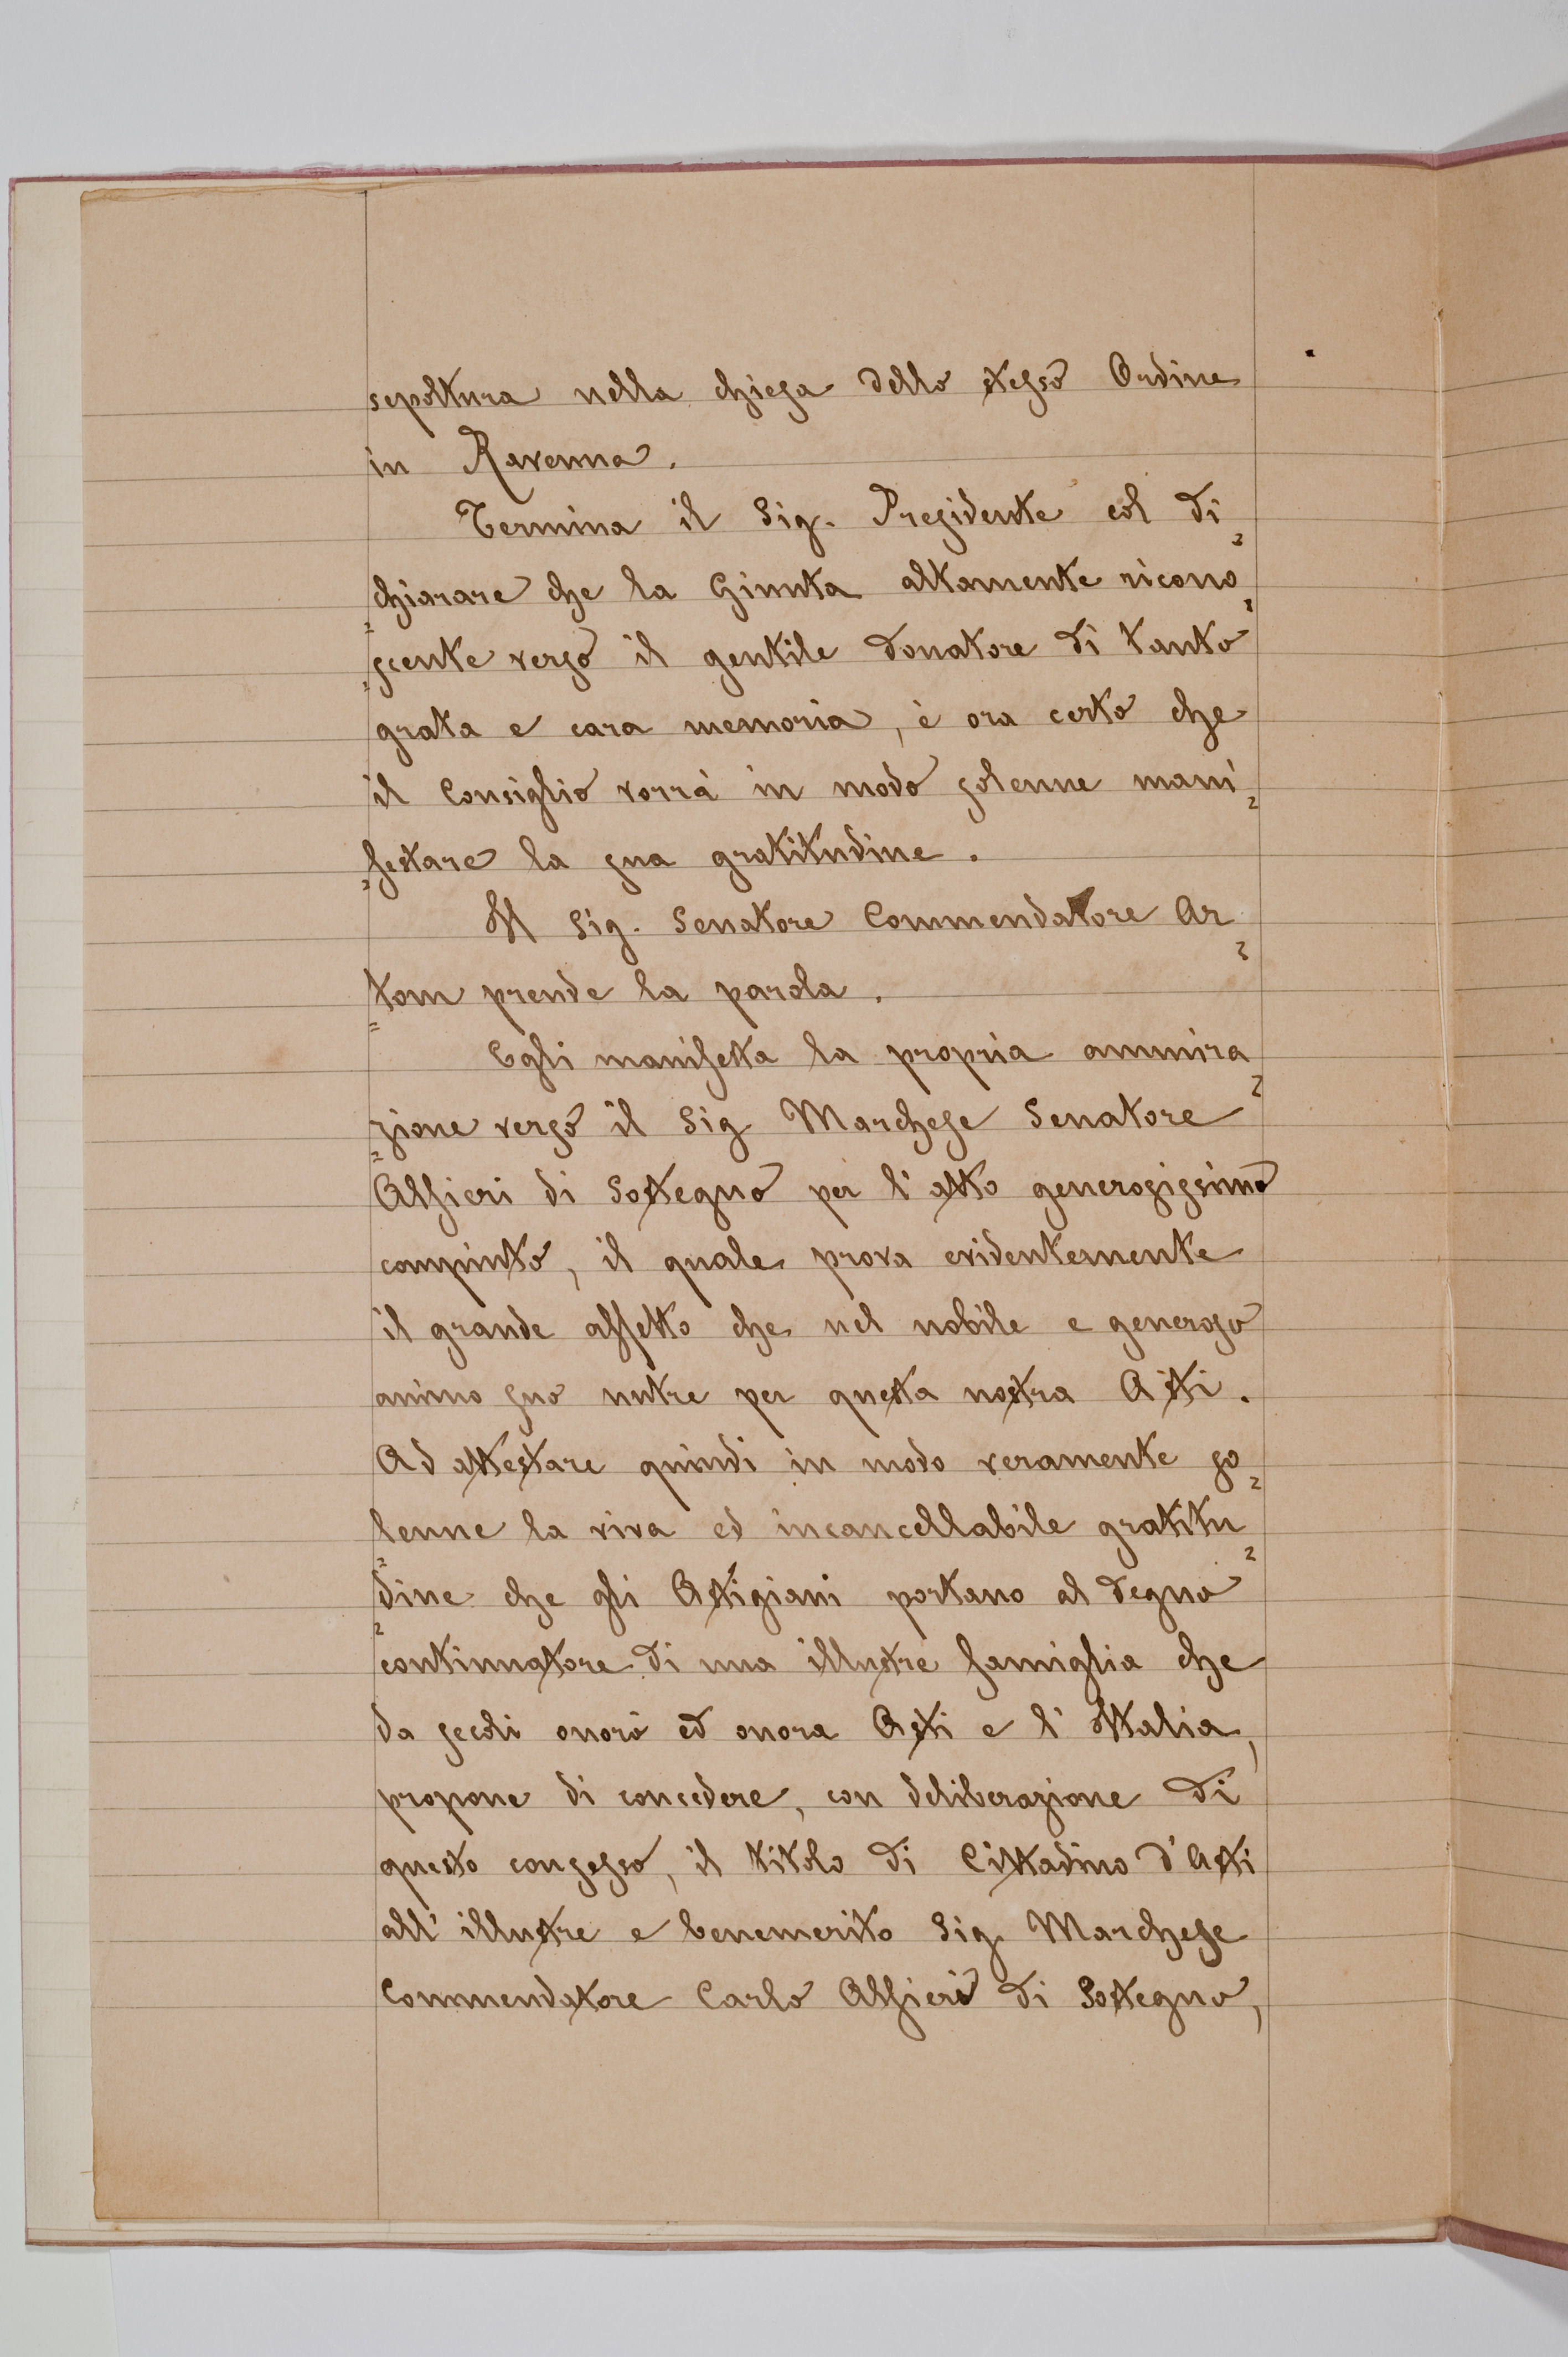 sepoltura nella chiesa dello stesso Ordine
in Ravenna.
Termina il Sig. Presidente col di=
=chiarare che la Giunta altamente ricono=
=scente verso il gentile donatore di tanto
grata e cara memoria, è ora certo che
il Consiglio vorrà in modo solenne mani=
=festare la sua gratitudine.
Il Sig. Senatore Commendatore Ar=
=tom prende la parola.
Egli manifesta la propria ammira=
=zione verso il Sig Marchese Senatore
Alfieri di Sostegno per l'atto generosissimo
compiuto, il quale prova evidentemente
il grande affetto che nel nobile e generoso
animo suo nutre per questa nostra Asti.
Ad attestare quindi in modo veramente so=
=lenne la viva ed incancellabile gratitu=
=dine che gli Astigiani portano al degno
continuatore di una illustre famiglia che
da secoli onorò ed onora Asti e l'Italia,
propone di concedere, con deliberazione di
questo consesso, il titolo di Cittadino d'Asti
all'illustre e benemerito Sig. Marchese
Commendatore Carlo Alfieri di Sostegno,